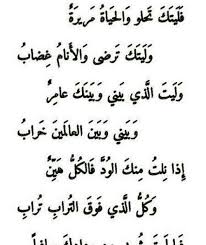 فَلَيتَكَ تَحلو وَالحَياةُ مَريرَةٌ
وَلَيتَكَ تَرضى وَالأَنامُ غِضابُ
وَلَيتَ الَّذي بَيني وَبَينَكَ عامِرٌ
وَبَيني وَبَينَ العالَمينَ خَرابُ
إِذا نِلتُ مِنكَ الوُدَّ فَالكُلُّ هَيِّنٌ
وَكُلُّ الَّذي فَوقَ التُرابِ تُرابِ